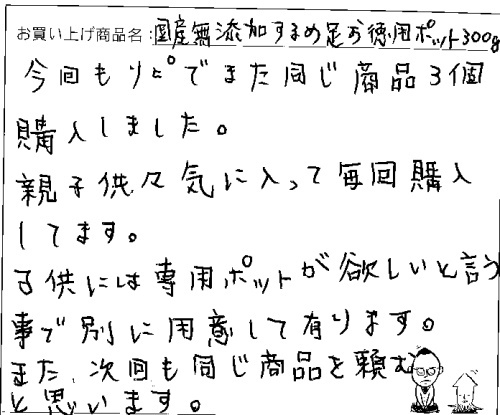 お買い上げ商品名：国産無添加するめ足お徳用ポット300g
今回もリピでまた同じ商品3個
購入しました。
親子供々気に入って毎回購入
してます。
子供には専用ポットが欲しいと言う
事で別に用意して有ります。
また、次回も同じ商品を頼む
と思います。